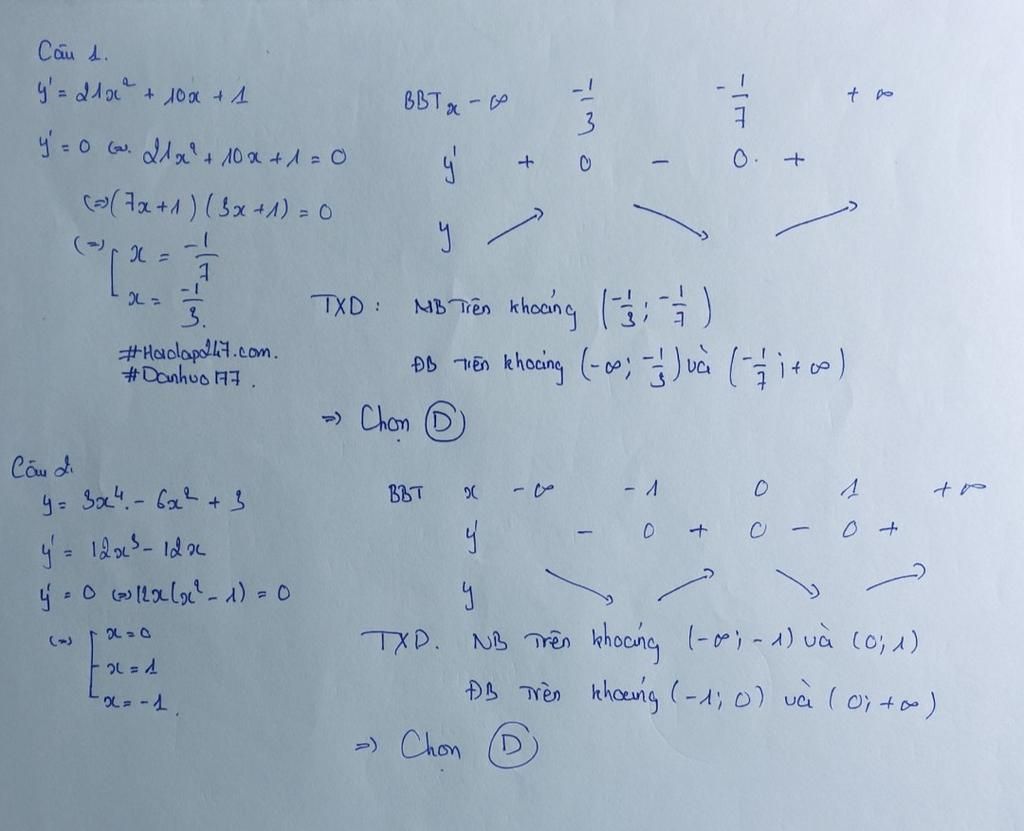 Câu 1.
y' = 21x² + 10x + 1
y' = 0 ⇔ 21x² + 10x + 1 = 0
⇔ (7x+1)(3x+1) = 0
⇔ [ x = -1/7
x = -1/3.
#Hoidap247.com.
#Danhuo177.
BBT x -∞ -1/3 -1/7 + ∞
y' + 0 - 0. +
y ↗ ↘ ↗
TXD: NB Trên khoảng (-1/3; -1/7)
ĐB Trên khoảng (-∞; -1/3) và (-1/7; +∞)
⇒ Chọn D
Câu 2.
y = 3x⁴ - 6x² + 3
y' = 12x³ - 12x
y' = 0 ⇔ 12x(x² - 1) = 0
⇔ [ x = 0
x = 1
x = -1.
BBT x -∞ -1 0 1 +∞
y' - 0 + 0 - 0 +
y ↘ ↗ ↘ ↗
TXD. NB Trên khoảng (-∞; -1) và (0; 1)
ĐB Trên khoảng (-1; 0) và (0; +∞)
⇒ Chọn D